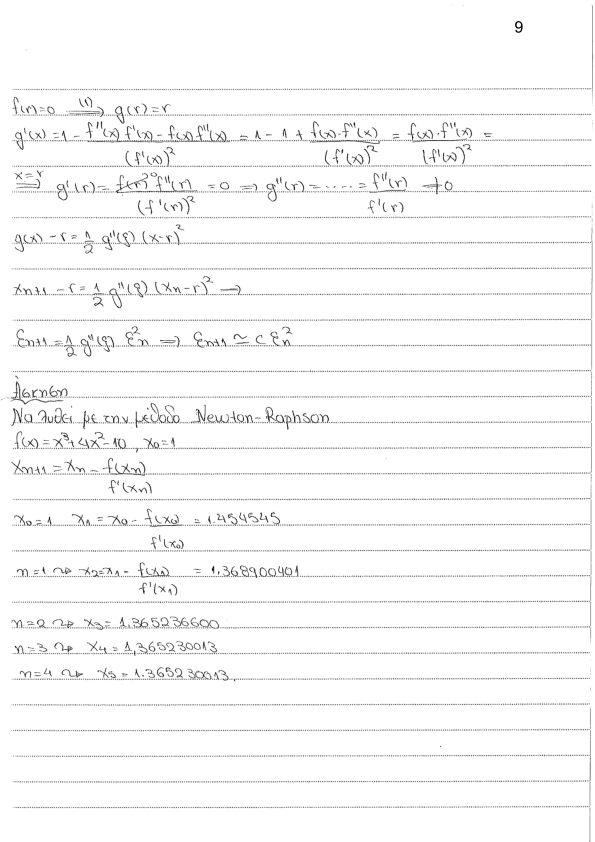 9
f(r)=0 ⟹(1) g(r)=r
g'(x)=1 - f''(x) f'(x) - f(x) f''(x) / (f'(x))^2 = 1 - 1 + f(x)·f''(x) / (f'(x))^2 = f(x)·f''(x) / (f'(x))^2 =
⟹(x=r) g'(r) = f(r)^0 f''(r) / (f'(r))^2 = 0 ⟹ g''(r) = ..... = f''(r) / f'(r) ≠ 0
g(x) - r = 1/2 g''(ξ) (x-r)^2
xn+1 - r = 1/2 g''(ξ) (xn-r)^2 →
εn+1 = 1/2 g''(ξ) ε^2n ⟹ εn+1 ≃ c εn^2
Άσκηση
Να λυθεί με την μέθοδο Newton-Raphson
f(x)=x^3+4x^2-10, x0=1
xn+1 = xn - f(xn) / f'(xn)
x0=1 x1 = x0 - f(x0) / f'(x0) = 1.454545
n=1 ⇝ x2=x1 - f(x1) / f'(x1) = 1.368900401
n=2 ⇝ x3= 1.365236600
n=3 ⇝ x4= 1,365230013
n=4 ⇝ x5= 1.365230013.